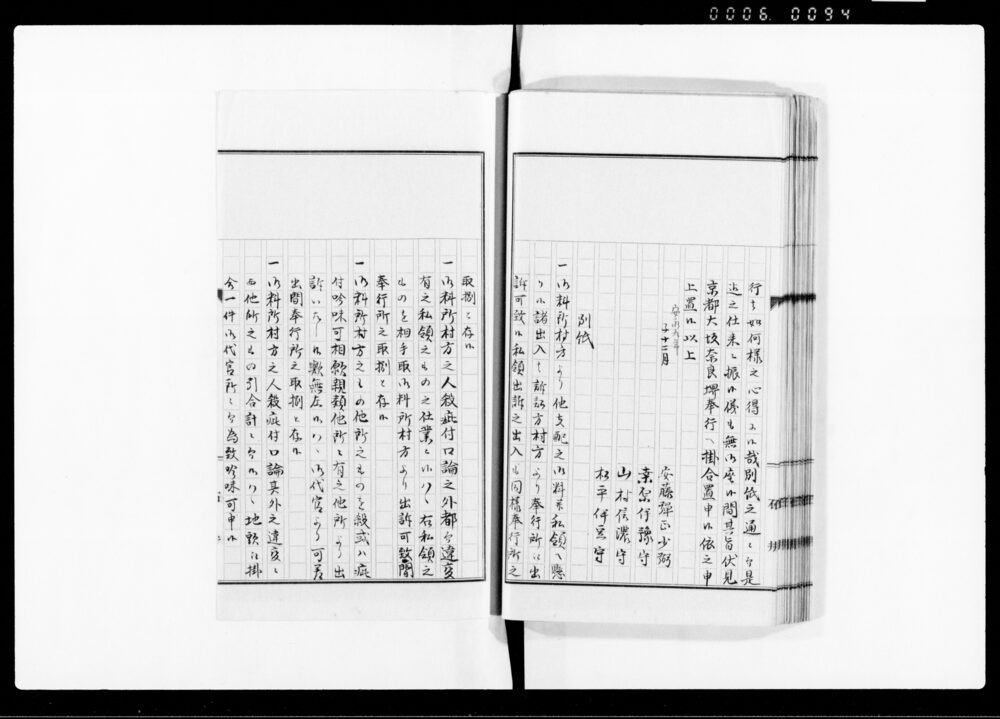 0006. 0094
行も如何様之心得ニ候哉別紙之通ニ而是
迄之仕来ニ振候儀も無御座候間其旨伏見
京都大坂奈良堺奉行へ掛合置申候依之申
上置候以上
安永九年
子十二月
安藤弾正少弼
桑原伊豫守
山村信濃守
松平伊豆守
別紙
一御料所村方より他支配之御料并私領へ懸
り候諸出入も訴訟方村方より奉行所江出
訴可致候私領出訴之出入も同様奉行所之
取捌と存候
一御料所村方之人殺疵付口論之外都而違変
有之私領之もの之仕業ニ候ハヽ右私領之
ものを相手取御料所村方より出訴可致間
奉行所之取捌と存候
一御料所村方之もの他所之ものを殺或ハ疵
付吟味可相願親類他所ニ有之他所より出
訴いたし候歟無左候ハヽ御代官より可差
出間奉行所之取捌と存候
一御料所村方之人殺疵付口論其外之違変ニ
而他所之もの引合計ニ而候ハヽ地頭江掛
合一件御代官所ニ而為致吟味可申候